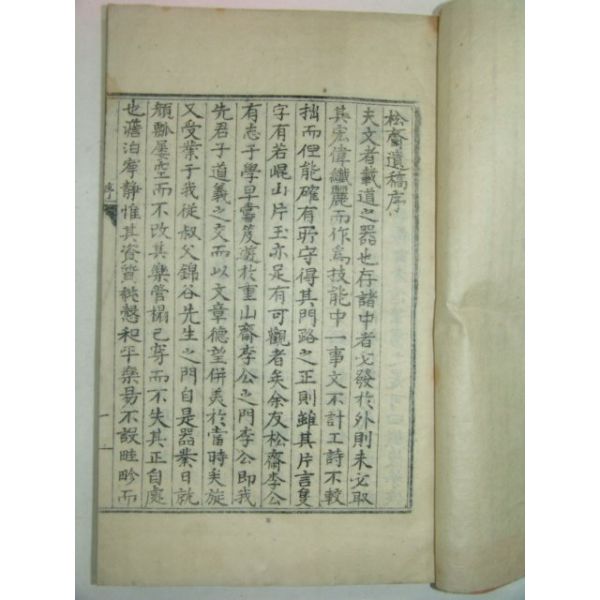 松齋遺稿序
夫文者載道之器也存諸中者必發於外則未必取
其宏偉纖麗而作爲技能中一事文不計工詩不較
拙而但能確有所守得其門路之正則雖其片言隻
字有若崐山片玉亦足有可觀者矣余友松齋李公
有志于學早䨥笈遊於重山齋李公之門李公即我
先君子道義之交而以文章德望併美於當時矣旋
又受業于我從叔父錦谷先生之門自是器業日就
顔瓢屢空而不改其樂管榻已穿而不失其正自處
也澹泊寧靜惟其資質純慤和平樂易不設畦畛而
序
一